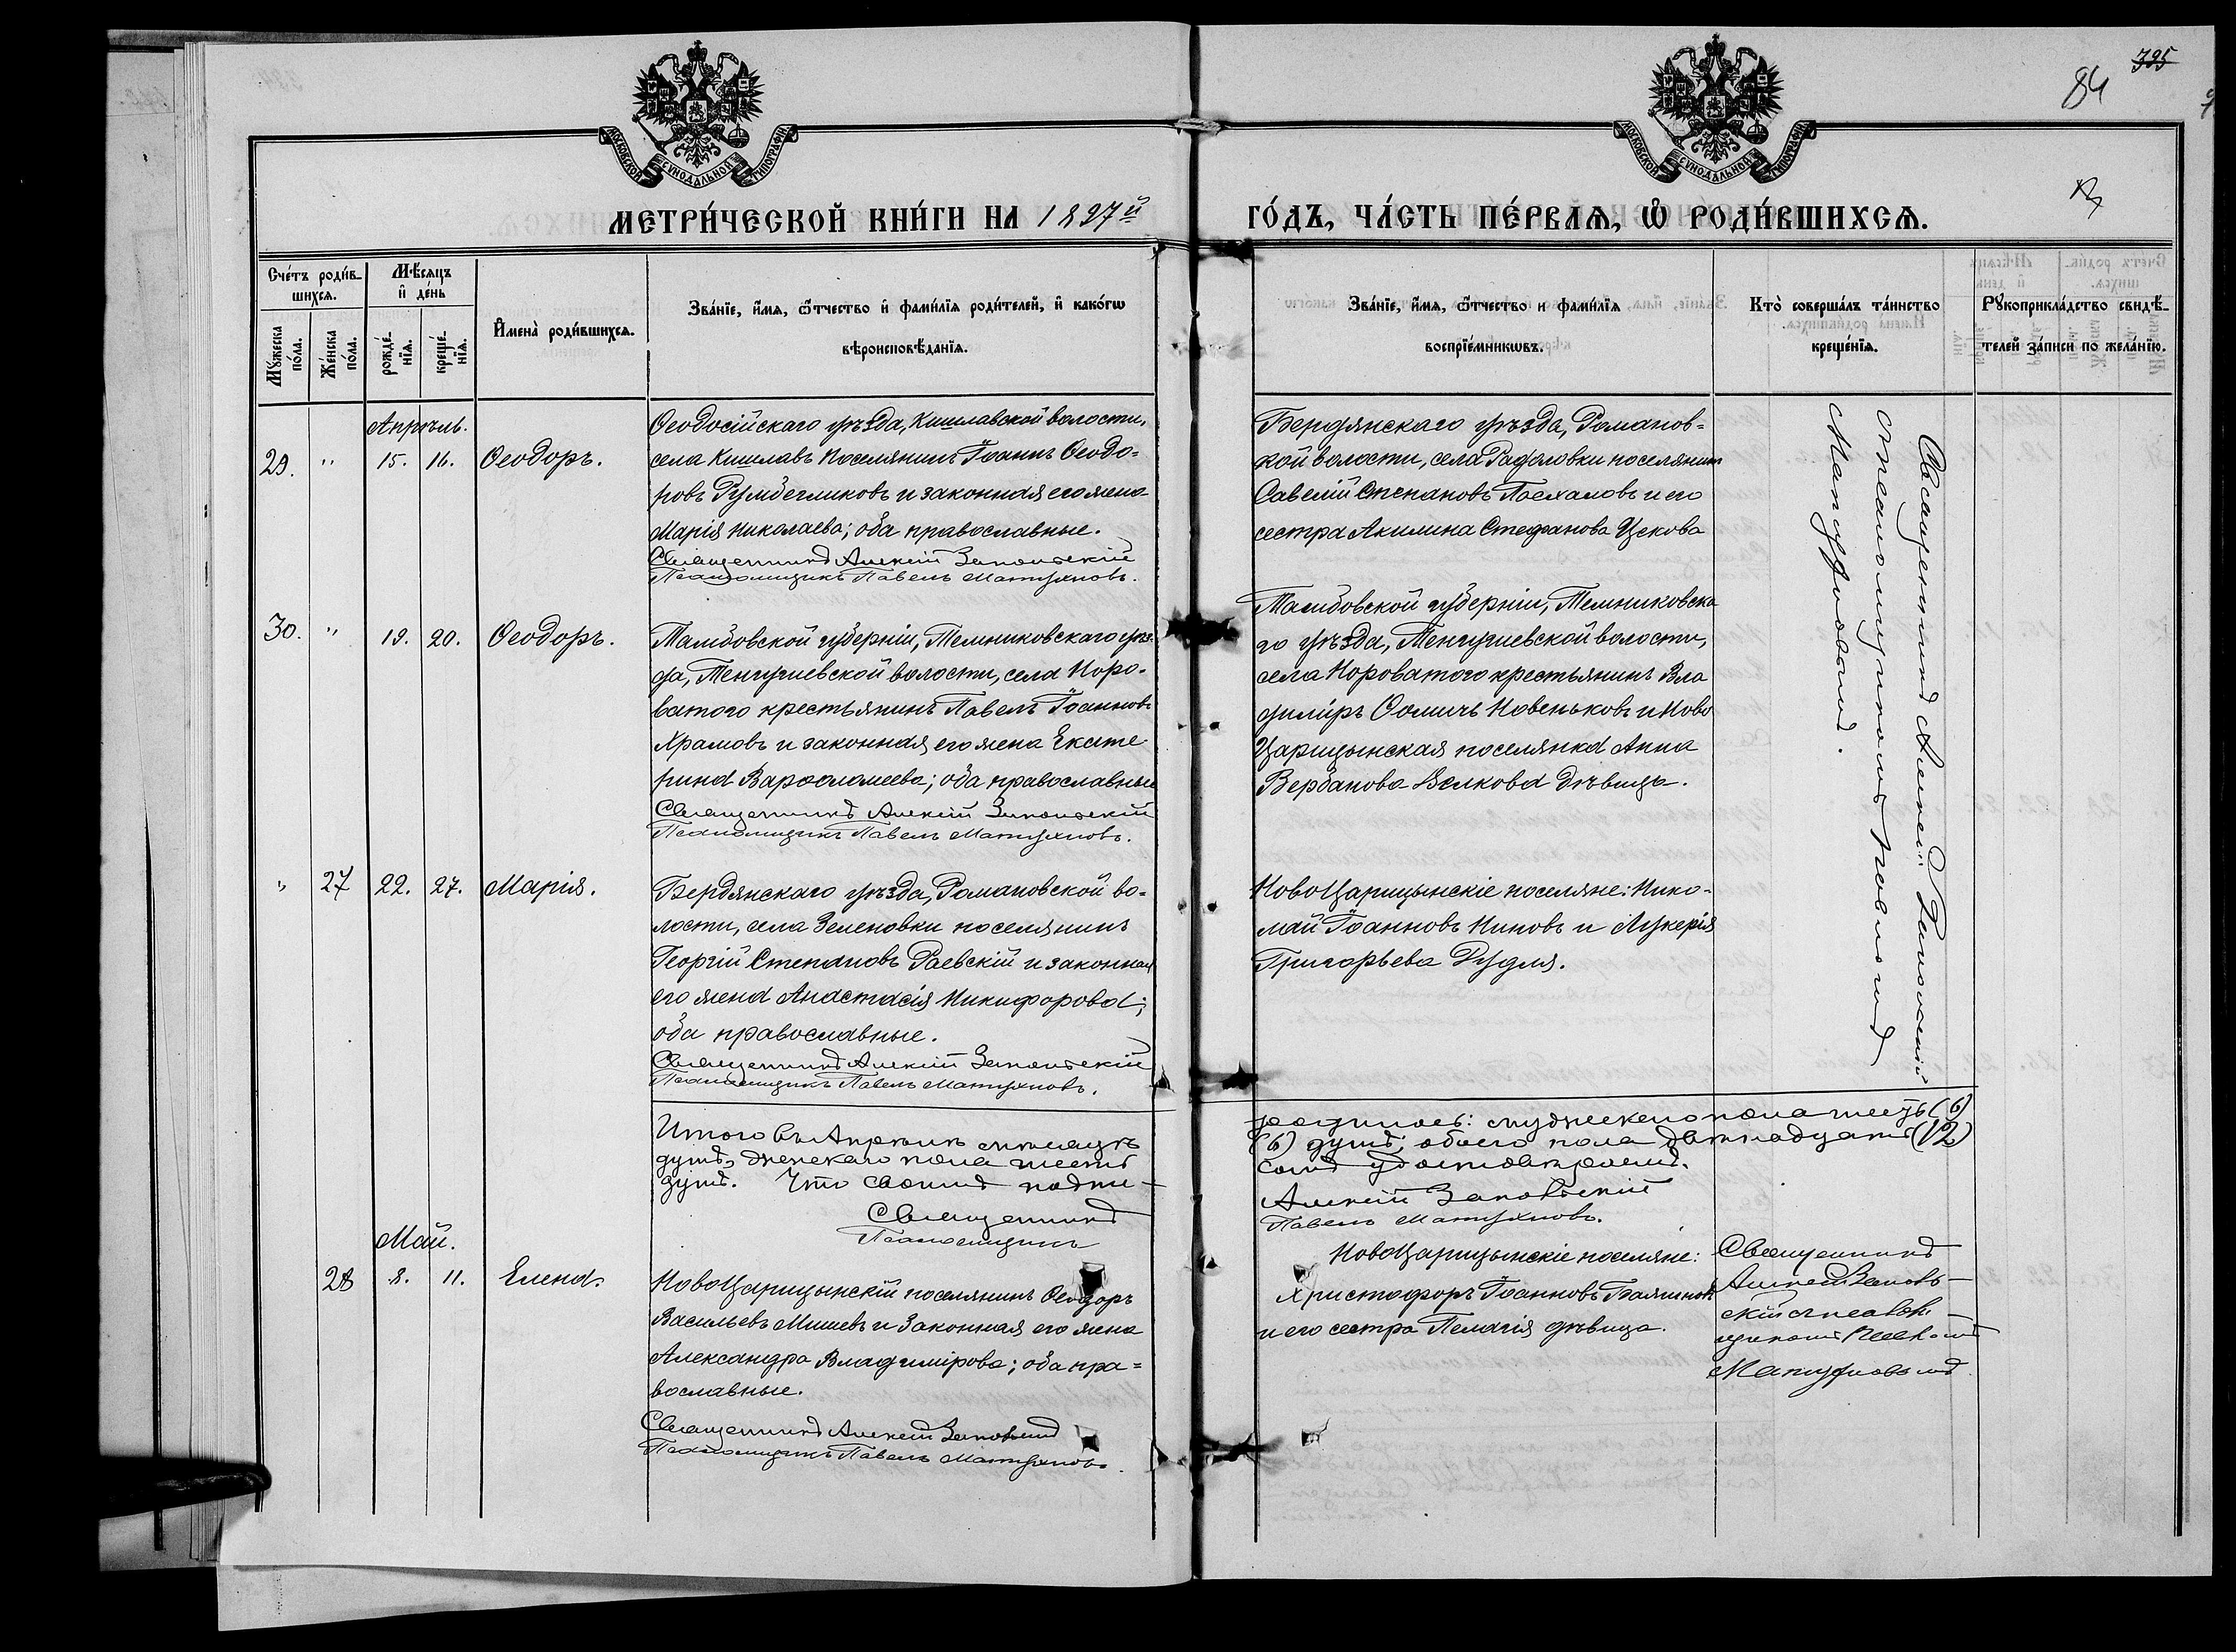 84
325
МОСКОВСКОЙ СѴНОДАЛЬНОЙ ТИПОГРАФІИ
МОСКОВСКОЙ СѴНОДАЛЬНОЙ ТИПОГРАФІИ
МЕТРИ́ЧЕСКОЙ КНИ́ГИ НА 1897й
ГО́ДЪ, ЧА́СТЬ ПЕ́РВАѦ, Ѡ҆ РОДИ́ВШИХСѦ.
Сче́тъ роди́в-
шихсѧ.
Мꙋ́жеска по́ла.
Же́нска по́ла.
Мѣ́сѧцъ
и҆ де́нь
рожде́-нїѧ.
креще́-нїѧ.
И҆мена̀ роди́вшихсѧ.
Зва́нїе, и҆́мѧ, ѻ҆́тчество и҆ фами́лїѧ роди́телей, и҆ како́гѡ
вѣроисповѣ́данїѧ.
Зва́нїе, и҆́мѧ, ѻ҆́тчество и фами́лїѧ
воспрїе́мникѡвъ.
Кто̀ соверша́лъ та́инство
креще́нїѧ.
Рꙋкоприкла́дство свидѣ́-
телей за́писи по жела́нїю.
Апрѣль.
29. " 15. 16. Ѳеодоръ.
Ѳеодосійскаго уѣзда, Кишлавской волости,
села Кишлавъ поселянинъ Іоаннъ Ѳеодо-
ровъ Румбегликовъ и законная его жена
Марія Николаева; оба православные.
Священникъ Алексій Зановскій
Псаломщикъ Павелъ Матухновъ.
Бердянскаго уѣзда, Романов-
кой волости, села Радоловки поселянинъ
Савелій Степановъ и его
сестра Акилина Стефанова Цекова
Священникъ Алексій
съ псаломщикомъ Павломъ
30. " 19. 20. Ѳеодоръ.
Тамбовской губерніи, Темниковскаго уѣз-
да, Тенгушевской волости, села Норо-
ватого крестьянинъ Павелъ Іоанновъ
Храмовъ и законная его жена Екате
рина Варѳоломеева; оба православные
Священникъ Алексій Зановскій
Псаломщикъ Павелъ Матухновъ.
Тамбовской губерніи, Темниковска
го уѣзда, Тенгушевской волости,
села Нороватого крестьянинъ Вла
димiръ Ѳомичъ Новеньковъ и Ново
Царицынская поселянка Анна
Вербанова Велкова дѣвица.
" 27 22. 27. Марія.
Бердянскаго уѣзда, Романовской во-
лости, села Зеленовки поселянинъ
Георгій Степановъ Раевскій и законная
его жена Анастасія Никифорова;
оба православные.
Священникъ Алексій Зановскій
Псаломщикъ Павелъ Матухновъ.
НовоЦарицынскіе поселяне: Нико-
лай Іоанновъ Ниновъ и Лукерія
Григорьева Дудля.
Итого въ Апрѣлѣ мѣсяцѣ
родилось: мужескаго пола шесть (6)
душъ, женскаго пола шесть
(6) душъ; обоего пола двѣнадцать (12)
душъ. Что своимъ подпи-
сомъ удостовѣряемъ.
Священникъ
Алексій Зановскій
Псаломщикъ
Павелъ Матухновъ.
Май.
28 8. 11. Елена.
НовоЦарицынскій поселянинъ Ѳеодоръ
Васильевъ Мишевъ и Законная его жена
Александра Владимірова; оба пра-
вославные.
Священникъ Алексій
Псаломщикъ Павелъ Матухновъ.
НовоЦарицынскіе поселяне:
Христофоръ Іоанновъ
и его сестра Пелагія дѣвица.
Священникъ
Алексій Занов-
скій съ псалом-
щикомъ Павломъ
Матухновымъ